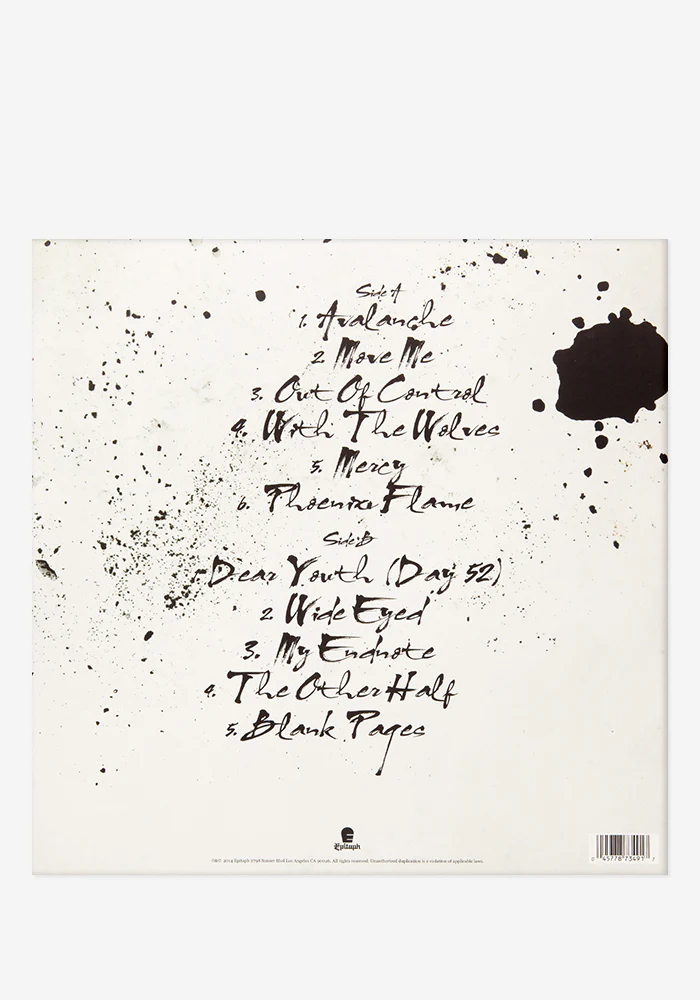 Side A
1. Avalanche
2. Move Me
3. Out Of Control
4. With The Wolves
5. Mercy
6. Phoenix Flame
Side B
Dear Youth (Day 52)
2. Wide Eyed
3. My Endnote
4. The Other Half
5. Blank Pages
Epitaph
2014 Epitaph 2798 Sunset Blvd Los Angeles CA 90026. All rights reserved. Unauthorized duplication is a violation of applicable laws.
0 45778 73491 7